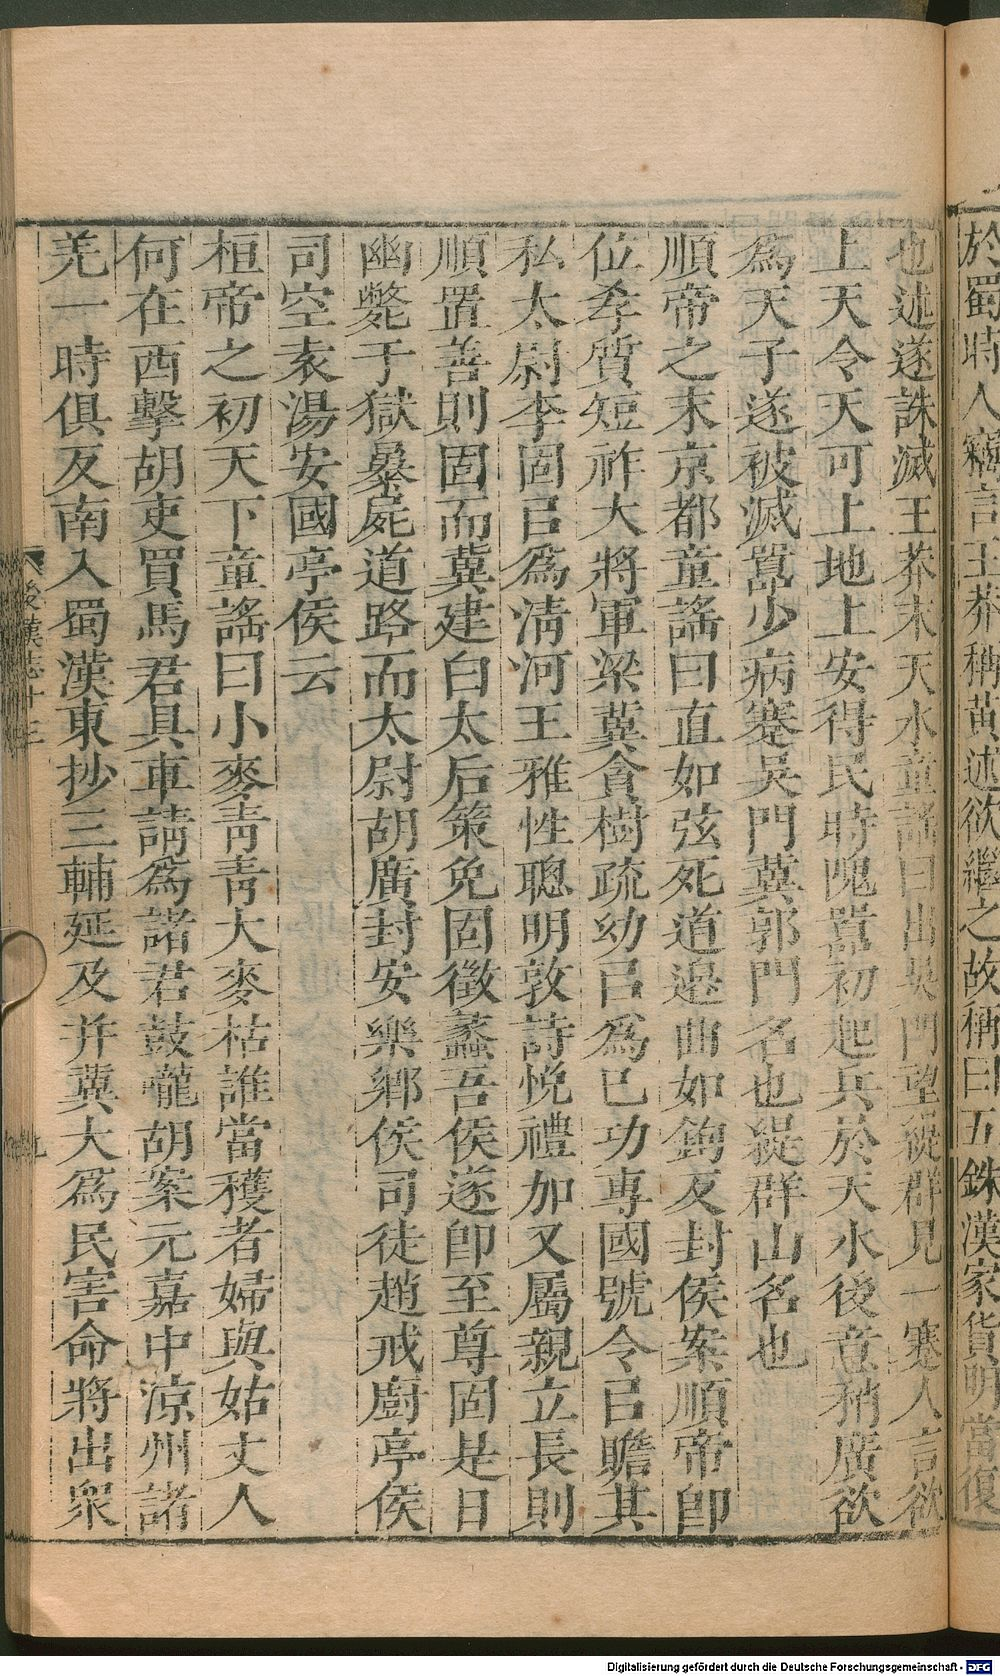 於蜀時人竊言王莽稱黃述欲繼之故稱白五銖漢家貨明當復
也述遂誅滅王莽末天水童謠曰出吳門望緹群見一蹇人言欲
上天令天可上地上安得民時隗囂初起兵於天水後意稍廣欲
為天子遂被滅囂少病蹇吳門冀郭門名也緹群山名也
順帝之末京都童謠曰直如弦死道邉曲如鉤反封侯案順帝即
位孝質短祚大將軍梁冀貪樹疏幼㠯為已功專國號令㠯贍其
私太尉李固㠯為清河王雅性聰明敦詩悅禮加又屬親立長則
順置善則固而冀建白太后策免固徵蠡吾侯遂即至尊固是日
幽斃于獄暴屍道路而太尉胡廣封安樂鄉侯司徒趙戒廚亭侯
司空袁湯安國亭侯云
桓帝之初天下童謠曰小麥青青大麥枯誰當穫者婦與姑丈人
何在西擊胡吏買馬君具車請為諸君鼓嚨胡案元嘉中涼州諸
羌一時俱反南入蜀漢東抄三輔延及并冀大為民害命將出衆
後漢志十三
九
Digitalisierung gefördert durch die Deutsche Forschungsgemeinschaft - DFG